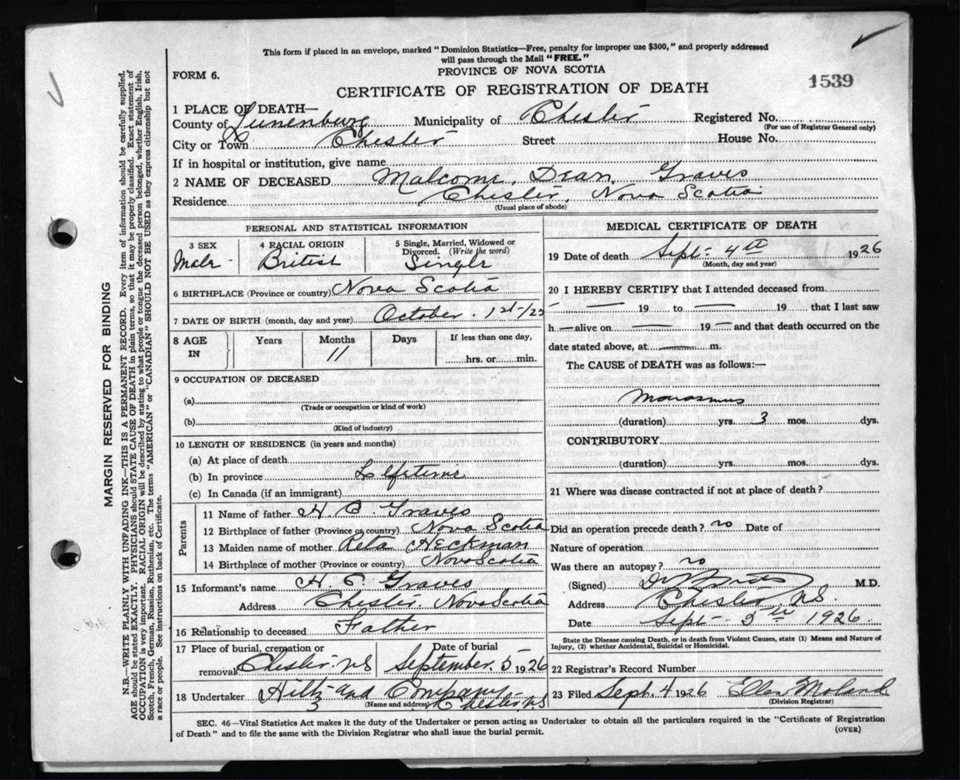 This form if placed in an envelope, marked "Dominion Statistics—Free, penalty for improper use $300," and properly addressed
will pass through the Mail "FREE."
FORM 6.
PROVINCE OF NOVA SCOTIA
CERTIFICATE OF REGISTRATION OF DEATH
1539
1 PLACE OF DEATH—
County of Lunenburg Municipality of Chester Registered No.
(For use of Registrar General only)
City or Town Chester Street House No.
If in hospital or institution, give name
2 NAME OF DECEASED Malcome Dean Graves
Residence Chester, Nova Scotia
(Usual place of abode)
PERSONAL AND STATISTICAL INFORMATION
3 SEX 4 RACIAL ORIGIN 5 Single, Married, Widowed or
Divorced. (Write the word)
Male British Single
6 BIRTHPLACE (Province or country) Nova Scotia
7 DATE OF BIRTH (month, day and year) October 1st/25
8 AGE IN Years Months Days If less than one day,
11 hrs. or min.
9 OCCUPATION OF DECEASED
(a)
(Trade or occupation or kind of work)
(b)
(Kind of industry)
10 LENGTH OF RESIDENCE (in years and months)
(a) At place of death
(b) In province Lifetime
(c) In Canada (if an immigrant)
Parents
11 Name of father H Graves
12 Birthplace of father (Province or country) Nova Scotia
13 Maiden name of mother Reta Heckman
14 Birthplace of mother (Province or country) Nova Scotia
15 Informant's name H Graves
Address Chester, Nova Scotia
16 Relationship to deceased Father
17 Place of burial, cremation or Date of burial
removal Chester NS September 5 1926
18 Undertaker Hiltz and Company
(Name and address) Chester NS
MEDICAL CERTIFICATE OF DEATH
19 Date of death Sept 4th 1926
(Month, day and year)
20 I HEREBY CERTIFY that I attended deceased from
19 to 19 that I last saw
h — alive on — 19 — and that death occurred on the
date stated above, at — m.
The CAUSE of DEATH was as follows:—
Marasmus
(duration) yrs. 3 mos. dys.
CONTRIBUTORY
(duration) yrs. mos. dys.
21 Where was disease contracted if not at place of death?
Did an operation precede death? no Date of
Nature of operation
Was there an autopsy? no
(Signed) M.D.
Address Chester NS
Date Sept 5th 1926
State the Disease causing Death, or in death from Violent Causes, state (1) Means and Nature of
Injury, (2) whether Accidental, Suicidal or Homicidal.
22 Registrar's Record Number
23 Filed Sept. 4 1926
(Division Registrar)
SEC. 46—Vital Statistics Act makes it the duty of the Undertaker or person acting as Undertaker to obtain all the particulars required in the "Certificate of Registration
of Death" and to file the same with the Division Registrar who shall issue the burial permit.
(OVER)
MARGIN RESERVED FOR BINDING
N.B.—WRITE PLAINLY WITH UNFADING INK—THIS IS A PERMANENT RECORD. Every item of information should be carefully supplied.
AGE should be stated EXACTLY. PHYSICIANS should STATE CAUSE OF DEATH in plain terms, so that it may be properly classified. Exact statement of
OCCUPATION is very important. RACIAL ORIGIN will be described by stating to what people or tongue the deceased person belonged, whether English, Irish,
Scotch, French, German, Russian, Ruthenian, etc. The terms "AMERICAN" or "CANADIAN" SHOULD NOT BE USED as they express citizenship but not
a race or people. See instructions on back of Certificate.